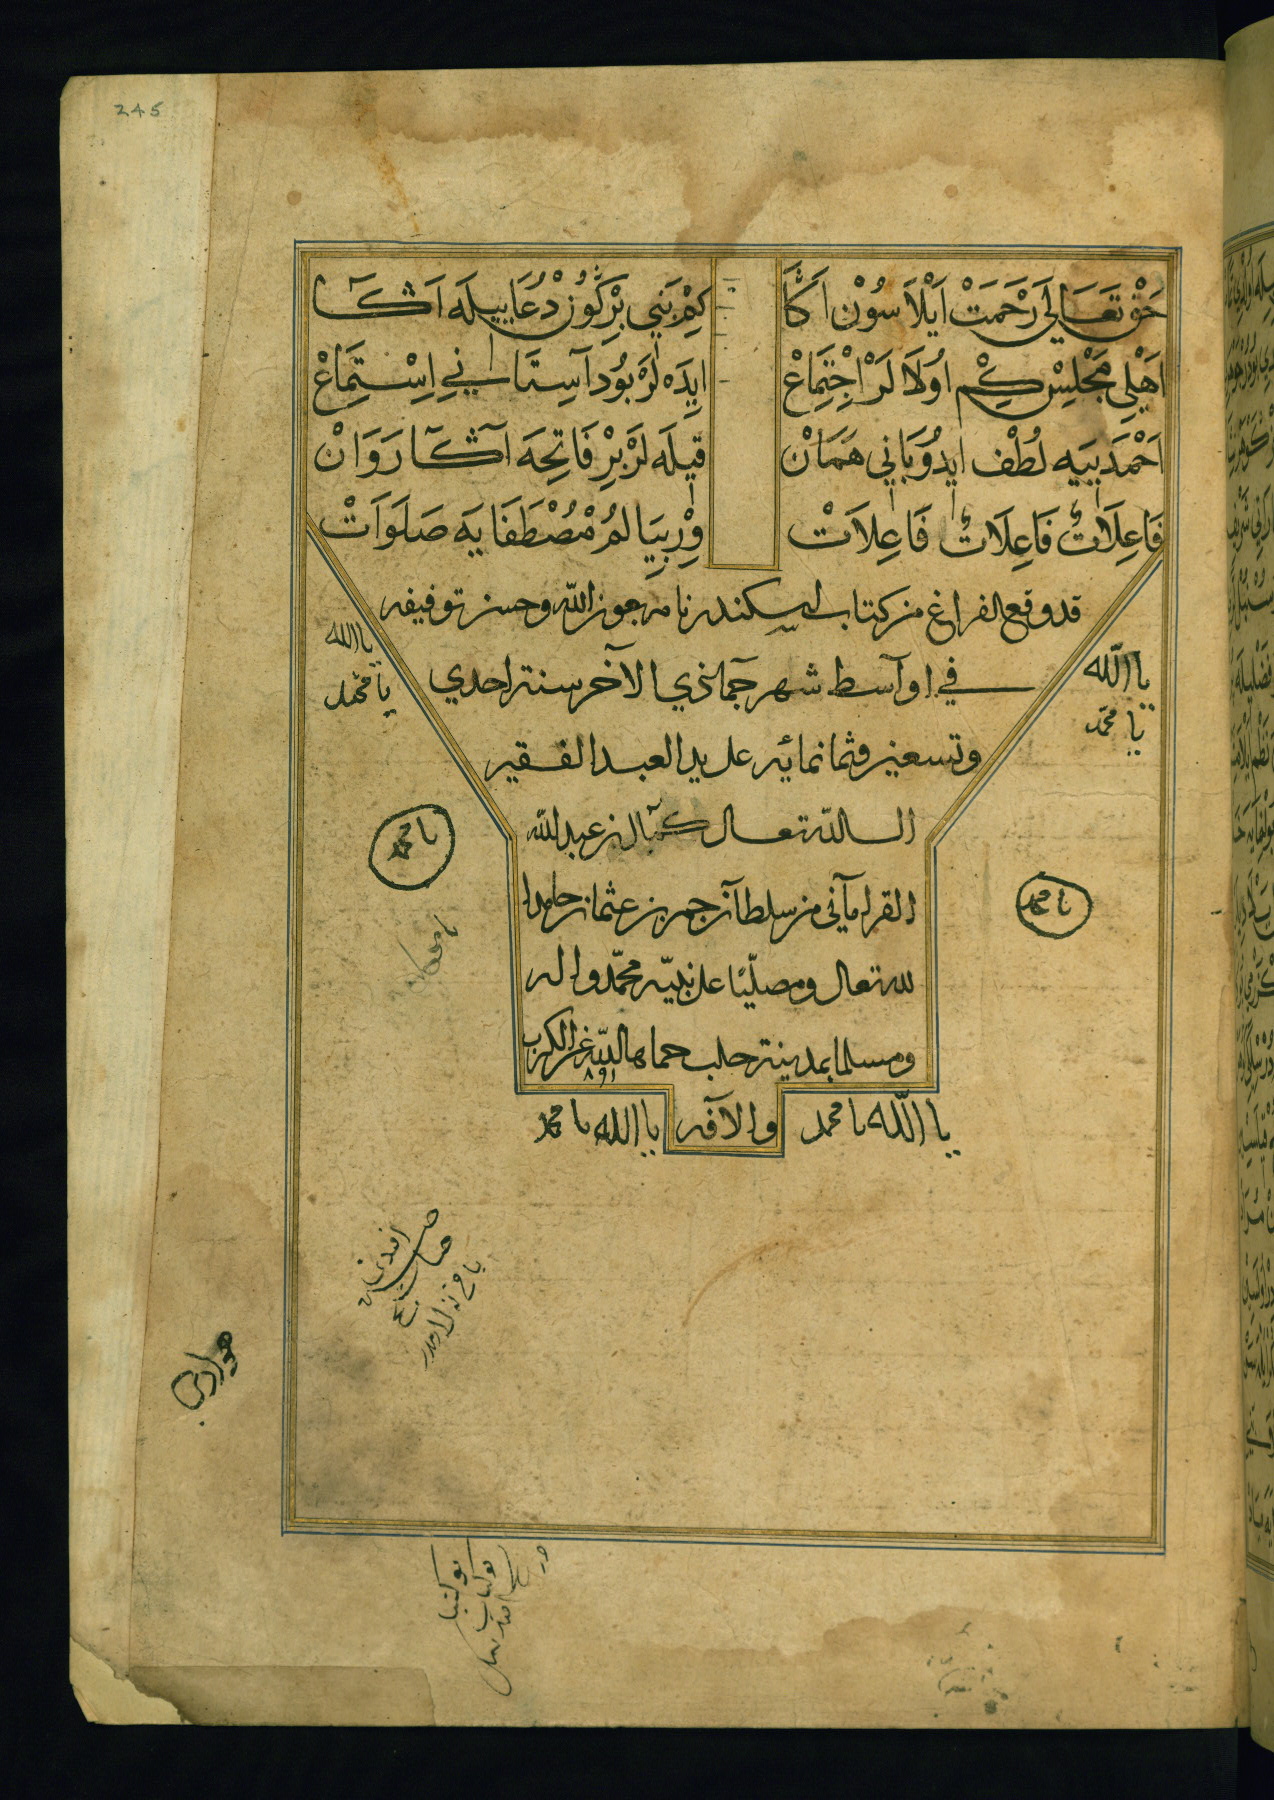 245
حَقْ تَعَالَي رَحْمَتْ اَيْلَاسُوْنْ اَكَّا كِمْ بَنِي بِرْ كُوْنْ دُعَا بيلَه اَكَا
اَهْلِ مَجْلِسْ كِمْ اُولَالَرْ اِجْتِمَاعْ ايدَه لَرْ بُو دَاسِتَانِي اِسْتِمَاعْ
اَحْمَدِييَه لُطْف ايدُوبَانِي هَمَانْ قيلَه لَرْ بِرْ فَاتِحَه آكَا رَوَانْ
فَاعِلَاتٌ فَاعِلَاتٌ فَاعِلَاتْ وِرْ بِيَالُمْ مُصْطَفَايَه صَلَوَاتْ
قد وقع الفراغ من كتاب اسكندرنامه بعون الله وحسن توفيقه
في اواسط شهر جمادي الآخر سنة احدي
وتسعين وثمانمائه على يد العبد الفقير
الى الله تعالى كمال بن عبد الله
القرامانى من سلطان جم بن عثمان حامدا
لله تعالى ومصليًا على نبيّه محمّد واله
ومسلما بمدينة حلب حماها الله عن الكرب
٨٩١
والآفه
يا الله
يا محمد
يا الله
يا محمد
يا محمد
يا محمد
يا الله يا محمد
يا الله يا محمد
بو كتاب